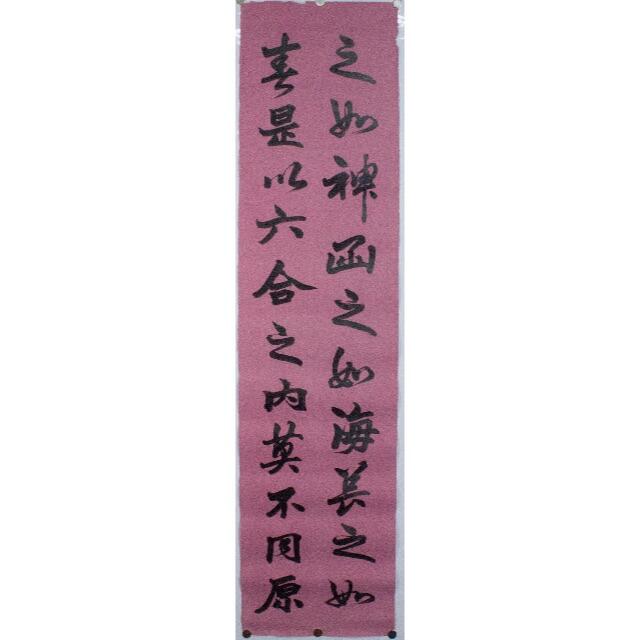 之如神函之如海養之如
春是以六合之内莫不同原